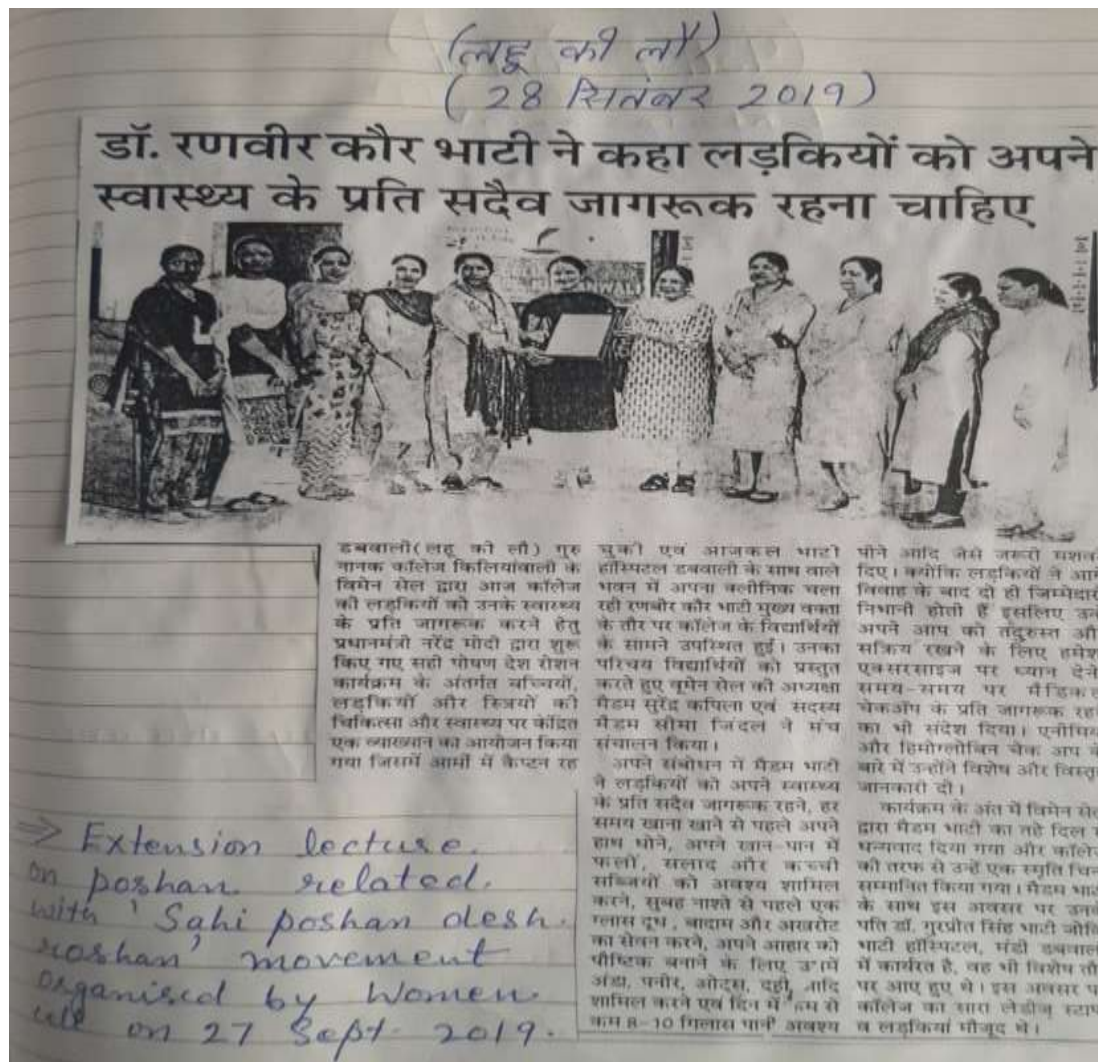 (लहू की लौ)
(28 सितंबर 2019)
डॉ. रणवीर कौर भाटी ने कहा लड़कियों को अपने
स्वास्थ्य के प्रति सदैव जागरूक रहना चाहिए
डबवाली(लहू की लौ) गुरु
नानक कॉलेज किलियांवाली के
विमेन सेल द्वारा आज कॉलेज
की लड़कियों को उनके स्वास्थ्य
के प्रति जागरूक करने हेतु
प्रधानमंत्री नरेंद्र मोदी द्वारा शुरू
किए गए सही पोषण देश रोशन
कार्यक्रम के अंतर्गत बच्चियों,
लड़कियों और स्त्रियों की
चिकित्सा और स्वास्थ्य पर केंद्रित
एक व्याख्यान का आयोजन किया
गया जिसमें आर्मी में कैप्टन रह
चुकी एवं आजकल भाटी
हॉस्पिटल डबवाली के साथ वाले
भवन में अपना क्लीनिक चला
रही रणबीर कौर भाटी मुख्य वक्ता
के तौर पर कॉलेज के विद्यार्थियों
के सामने उपस्थित हुई। उनका
परिचय विद्यार्थियों को प्रस्तुत
करते हुए वूमेन सेल की अध्यक्षा
मैडम सुरेंद्र कपिला एवं सदस्य
मैडम सीमा जिंदल ने मंच
संचालन किया।
अपने संबोधन में मैडम भाटी
ने लड़कियों को अपने स्वास्थ्य
के प्रति सदैव जागरूक रहने, हर
समय खाना खाने से पहले अपने
हाथ धोने, अपने खान-पान में
फलों, सलाद और कच्ची
सब्जियों को अवश्य शामिल
करने, सुबह नाश्ते से पहले एक
ग्लास दूध, बादाम और अखरोट
का सेवन करने, अपने आहार को
पौष्टिक बनाने के लिए
अंडा, पनीर, ओट्स, दही,
शामिल करने एवं दिन में से
कम 8-10 गिलास पानी अवश्य
पीने आदि जैसे जरूरी
दिए। क्योंकि लड़कियों ने
विवाह के बाद दो ही
निभानी होती हैं इसलिए
अपने आप को तंदुरुस्त
सक्रिय रखने के लिए
एक्सरसाइज पर ध्यान
समय-समय पर
चेकअॅप के प्रति जागरूक
का भी संदेश दिया।
और हिमोग्लोबिन चेक अप
बारे में उन्होंने विशेष और
जानकारी दी।
कार्यक्रम के अंत में विमेन
द्वारा मैडम भाटी का तहे दिल
धन्यवाद दिया गया और
की तरफ से उन्हें एक स्मृति
सम्मानित किया गया। मैडम
के साथ इस अवसर पर
पति डॉ. गुरप्रीत सिंह भाटी
भाटी हॉस्पिटल, मंडी
में कार्यरत है, वह भी विशेष
पर आए हुए थे। इस अवसर
कॉलेज का सारा लेडीज
व लड़कियां मौजूद थे।
⇒ Extension lecture.
on poshan related.
with 'Sahi poshan desh.
roshan' movement
organised by Women
cell on 27 Sept- 2019.